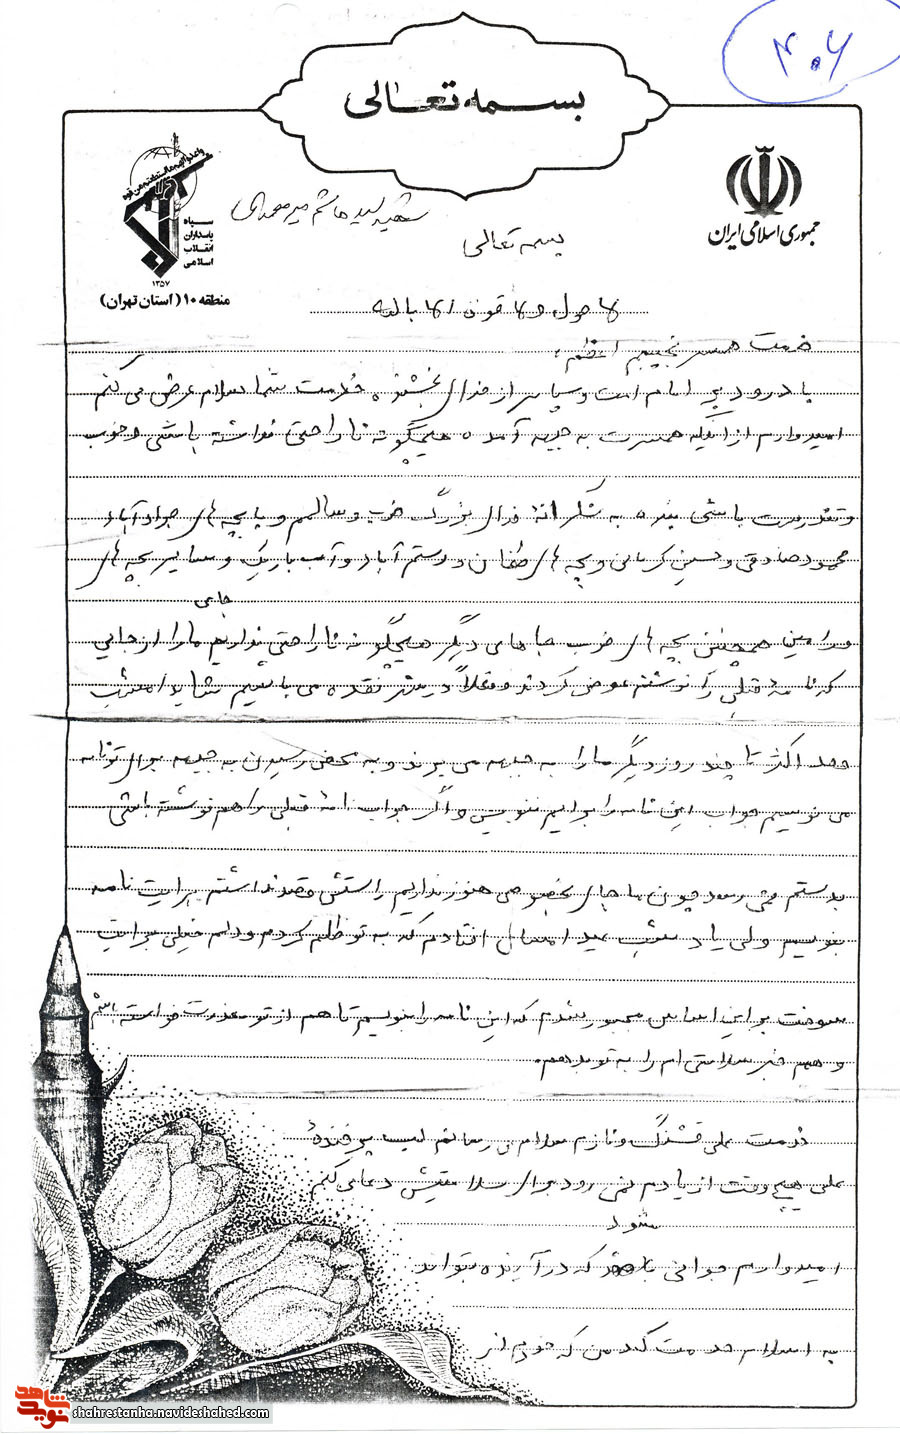 ۴۰۶
بسمه تعالی
سپاه
پاسداران
انقلاب
اسلامی
۱۳۵۷
منطقه ۱۰ (استان تهران)
جمهوری اسلامی ایران
شهید سید هاشم میرمحمدی
بسمه تعالی
لا حول ولا قوه الا بالله
خدمت همسر نجیبم اعظم،
با درود بر امام امت و سپاس از خدای بخشنده خدمت شما سلام عرض می کنم
امیدوارم از اینکه همسرت به جبهه آمده هیچگونه ناراحتی نداشته باشی و خوب
و تندرست باشی بنده به شکرانه خدای بزرگ خوب و سالم و با بچه های جوادآباد
محمود صادقی و حسین کرمانی و بچه های طغان و رستم آباد و آب باریک و سایر بچه های
جای
ورامین همچنین بچه های خوب جاهای دیگر هیچگونه ناراحتی نداریم ما را از جایی
که نامه قبلی را نوشتم عوض کردند و فعلاً در نقده می باشیم شاید امشب
حداکثر تا چند روز دیگر ما را به جبهه می برند و به محض رسیدن به جبهه برای تو نامه
می نویسم جواب این نامه را برایم ننویس و اگر جواب نامه قبلی را هم نوشته باشی
بدستم نمی رسد چون ما جای بخصوصی هنوز نداریم راستش قصد نداشتم برایت نامه
بنویسم ولی یاد شب عید امسال افتادم که به تو ظلم کردم و دلم خیلی برایت
سوخت بر این اساس مجبور شدم که این نامه را بنویسم تا هم از تو معذرت خواسته باشم
و هم خبر سلامتی ام را به تو بدهم.
خدمت علی قشنگ و نازم سلام می رسانم لب پر خنده
علی هیچ وقت از یادم نمی رود برای سلامتیش دعا می کنم
شود
امیدوارم جوانی که در آینده بتواند
به اسلام خدمت کند من که خودم از
shahrestanha.navideshahed.com
نوید شاهد